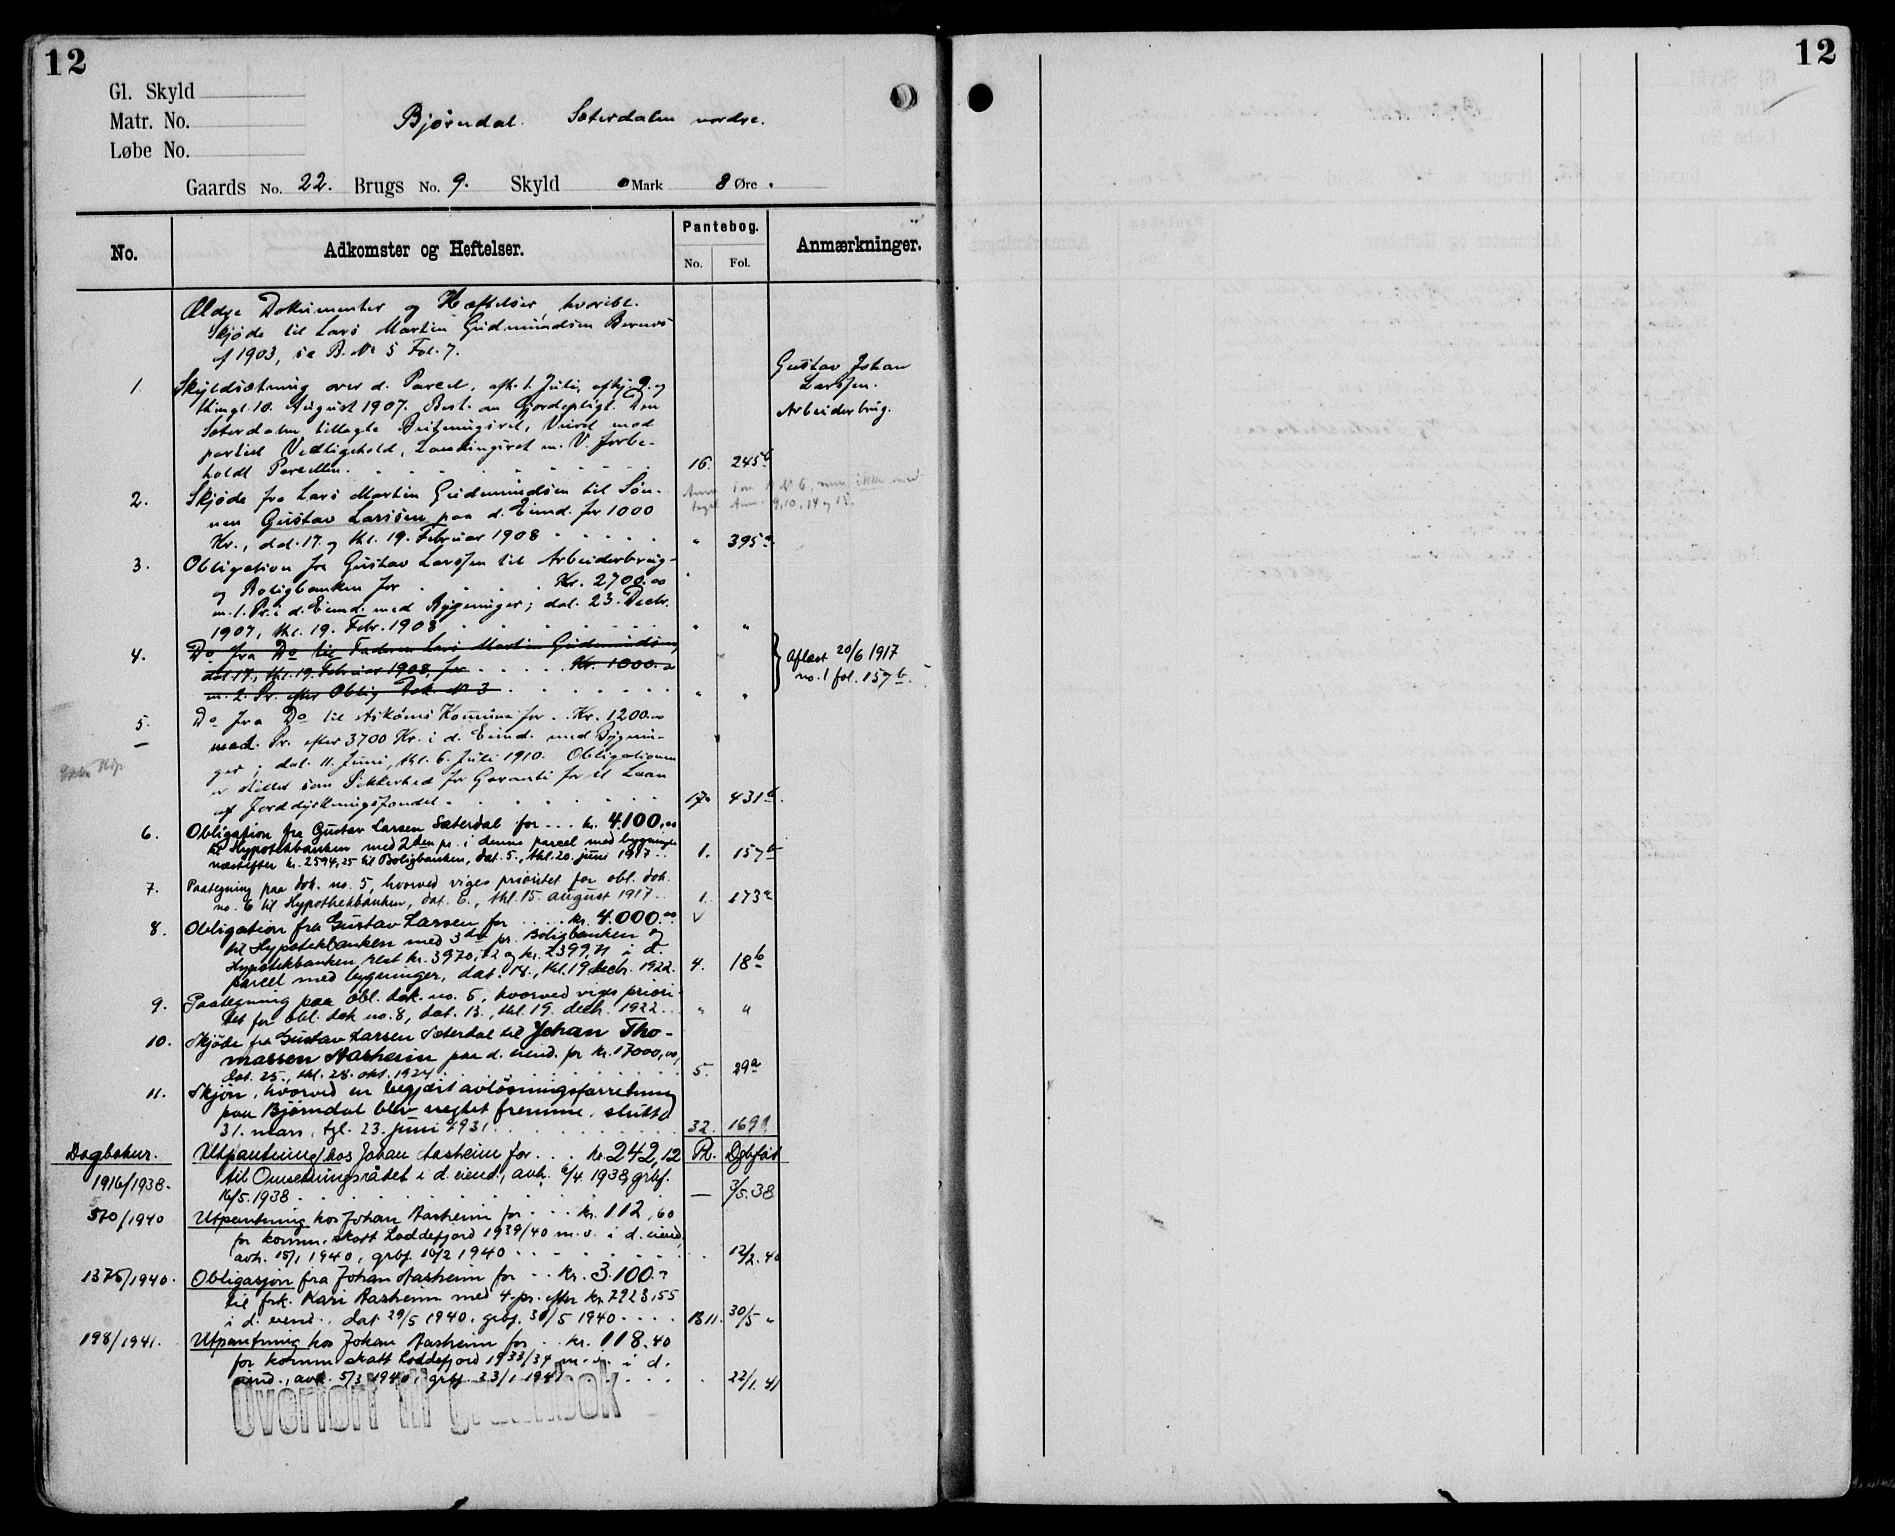 12
12
Gl. Skyld
Matr. No.
Løbe No.
Bjørndal. Sæterdalen nordre.
Gaards No. 22. Brugs No. 9. Skyld 0 Mark 8 Øre.
No.
Adkomster og Heftelser.
Pantebog.
No. Fol.
Anmærkninger.
Ældre Dokumenter og Hæftelser, hvoribl.
Skjøde til Lars Martin Gudmundsen
af 1903, se B. No 5 Fol. 7.
Gustav Johan
Larssen.
Arbeiderbrug.
1. Skyldsætning over d. Parcel, afh. 1. Juli, afhj. 9. og
thingl. 10. August 1907. Best. om Gjordepligt. Den
Sæterdalen tillagte Beitningsret, Veiret mod
partiel Vedligehold, Landingsret m. V. forbe-
holdt Parcellen. 16. 245b
2. Skjøde fra Lars Martin Gudmundsen til Søn-
nen Gustav Larssen paa d. Eiend. for 1000
Kr., dat. 17. og thl. 19. Februar 1908 " 395a
3. Obligation fra Gustav Larssen til Arbeiderbrug-
og Boligbanken for Kr. 2700.00
m. 1. Pr. i d. Eiend. med Bygninger; dat. 23. Decbr.
1907, thl. 19. Febr. 1908 " "
4. Do fra Do til Faderen Lars Martin Gudmundsen,
dat. 17., thl. 19. Februar 1908, for Kr. 1000.00
m. 2. Pr. efter Oblig. Dok. No 3 " "
Aflæst 20/6 1917
no. 1 fol. 157b.
5. Do fra Do til Askøens Kommune for Kr. 1200.00
med Pr. efter 3700 Kr. i d. Eiend. med Bygnin-
ger; dat. 11. Juni, thl. 6. Juli 1910. Obligationen
er stillet som Sikkerhed for Garanti for et Laan
af Jorddyrkningsfondet. 17. 431b.
6. Obligation fra Gustav Larsen Sæterdal for kr. 4100,00
til Hypotekbanken med 2den pr. i denne parcel med bygninger
næstefter kr. 2594,25 til Boligbanken, dat. 5., thl. 20. juni 1917. 1. 157b
7. Paategning paa dok. no. 5, hvorved viges prioritet for obl. dok.
no. 6 til Hypothekbanken, dat. 6., thl. 15. august 1917 1. 173a
8. Obligation fra Gustav Larsen for kr. 4.000.00
til Hypotekbanken med 3die pr. Boligbanken og
Hypotekbanken, rest kr. 3970,12 og kr. 2399,71 i d.
parcel med bygninger, dat. 14., thl. 19. decbr. 1922. 4. 18b
9. Paategning paa obl. dok. no. 5, hvorved viges priori-
tet for obl. dok no. 8, dat. 13., thl. 19. decbr. 1922. " "
10. Skjøde fra Gustav Larsen Sæterdal til Johan Tho-
massen Aasheim paa d. eiend. for kr. 17000,00,
dat. 25., thl. 28. okt. 1924 5. 29a
11. Skjøn, hvorved en begjært avløsningsforretning
paa Bjørndal blev negtet fremme, sluttet
31. mars, tgl. 23. juni 1931. 32. 169
Dagboknr. Pb. Dgbført
1916/1938. Utpantning hos Johan Aasheim for kr. 242,12
til Omsetningsrådet i d. eiend., avh. 6/4 1938, grbf.
16/5. 1938 — 3/5. 38
570/1940 Utpantning hos Johan Aasheim for kr. 112,60
for komm. skatt Laddefjord 1939/40 m.v. i d. eiend,
avh. 15/1 1940, grbf. 16/2 1940 12/2. 40
1375/1940. Obligasjon fra Johan Aasheim for kr. 3.100.-
til frk. Kari Aasheim med 4. pr. efter kr. 7923,55
i d. eiend., dat 29/5 1940. grbf. 31/5 1940 B11. 30/5 "
198/1941. Utpantning hos Johan Aasheim for kr. 118.40
for komm skatt Laddefjord 1933/34 m.v. i d.
eiend., avh. 5/3 1940, grbf. 23/1 1941 22/1. 41
Overført til grunnbok